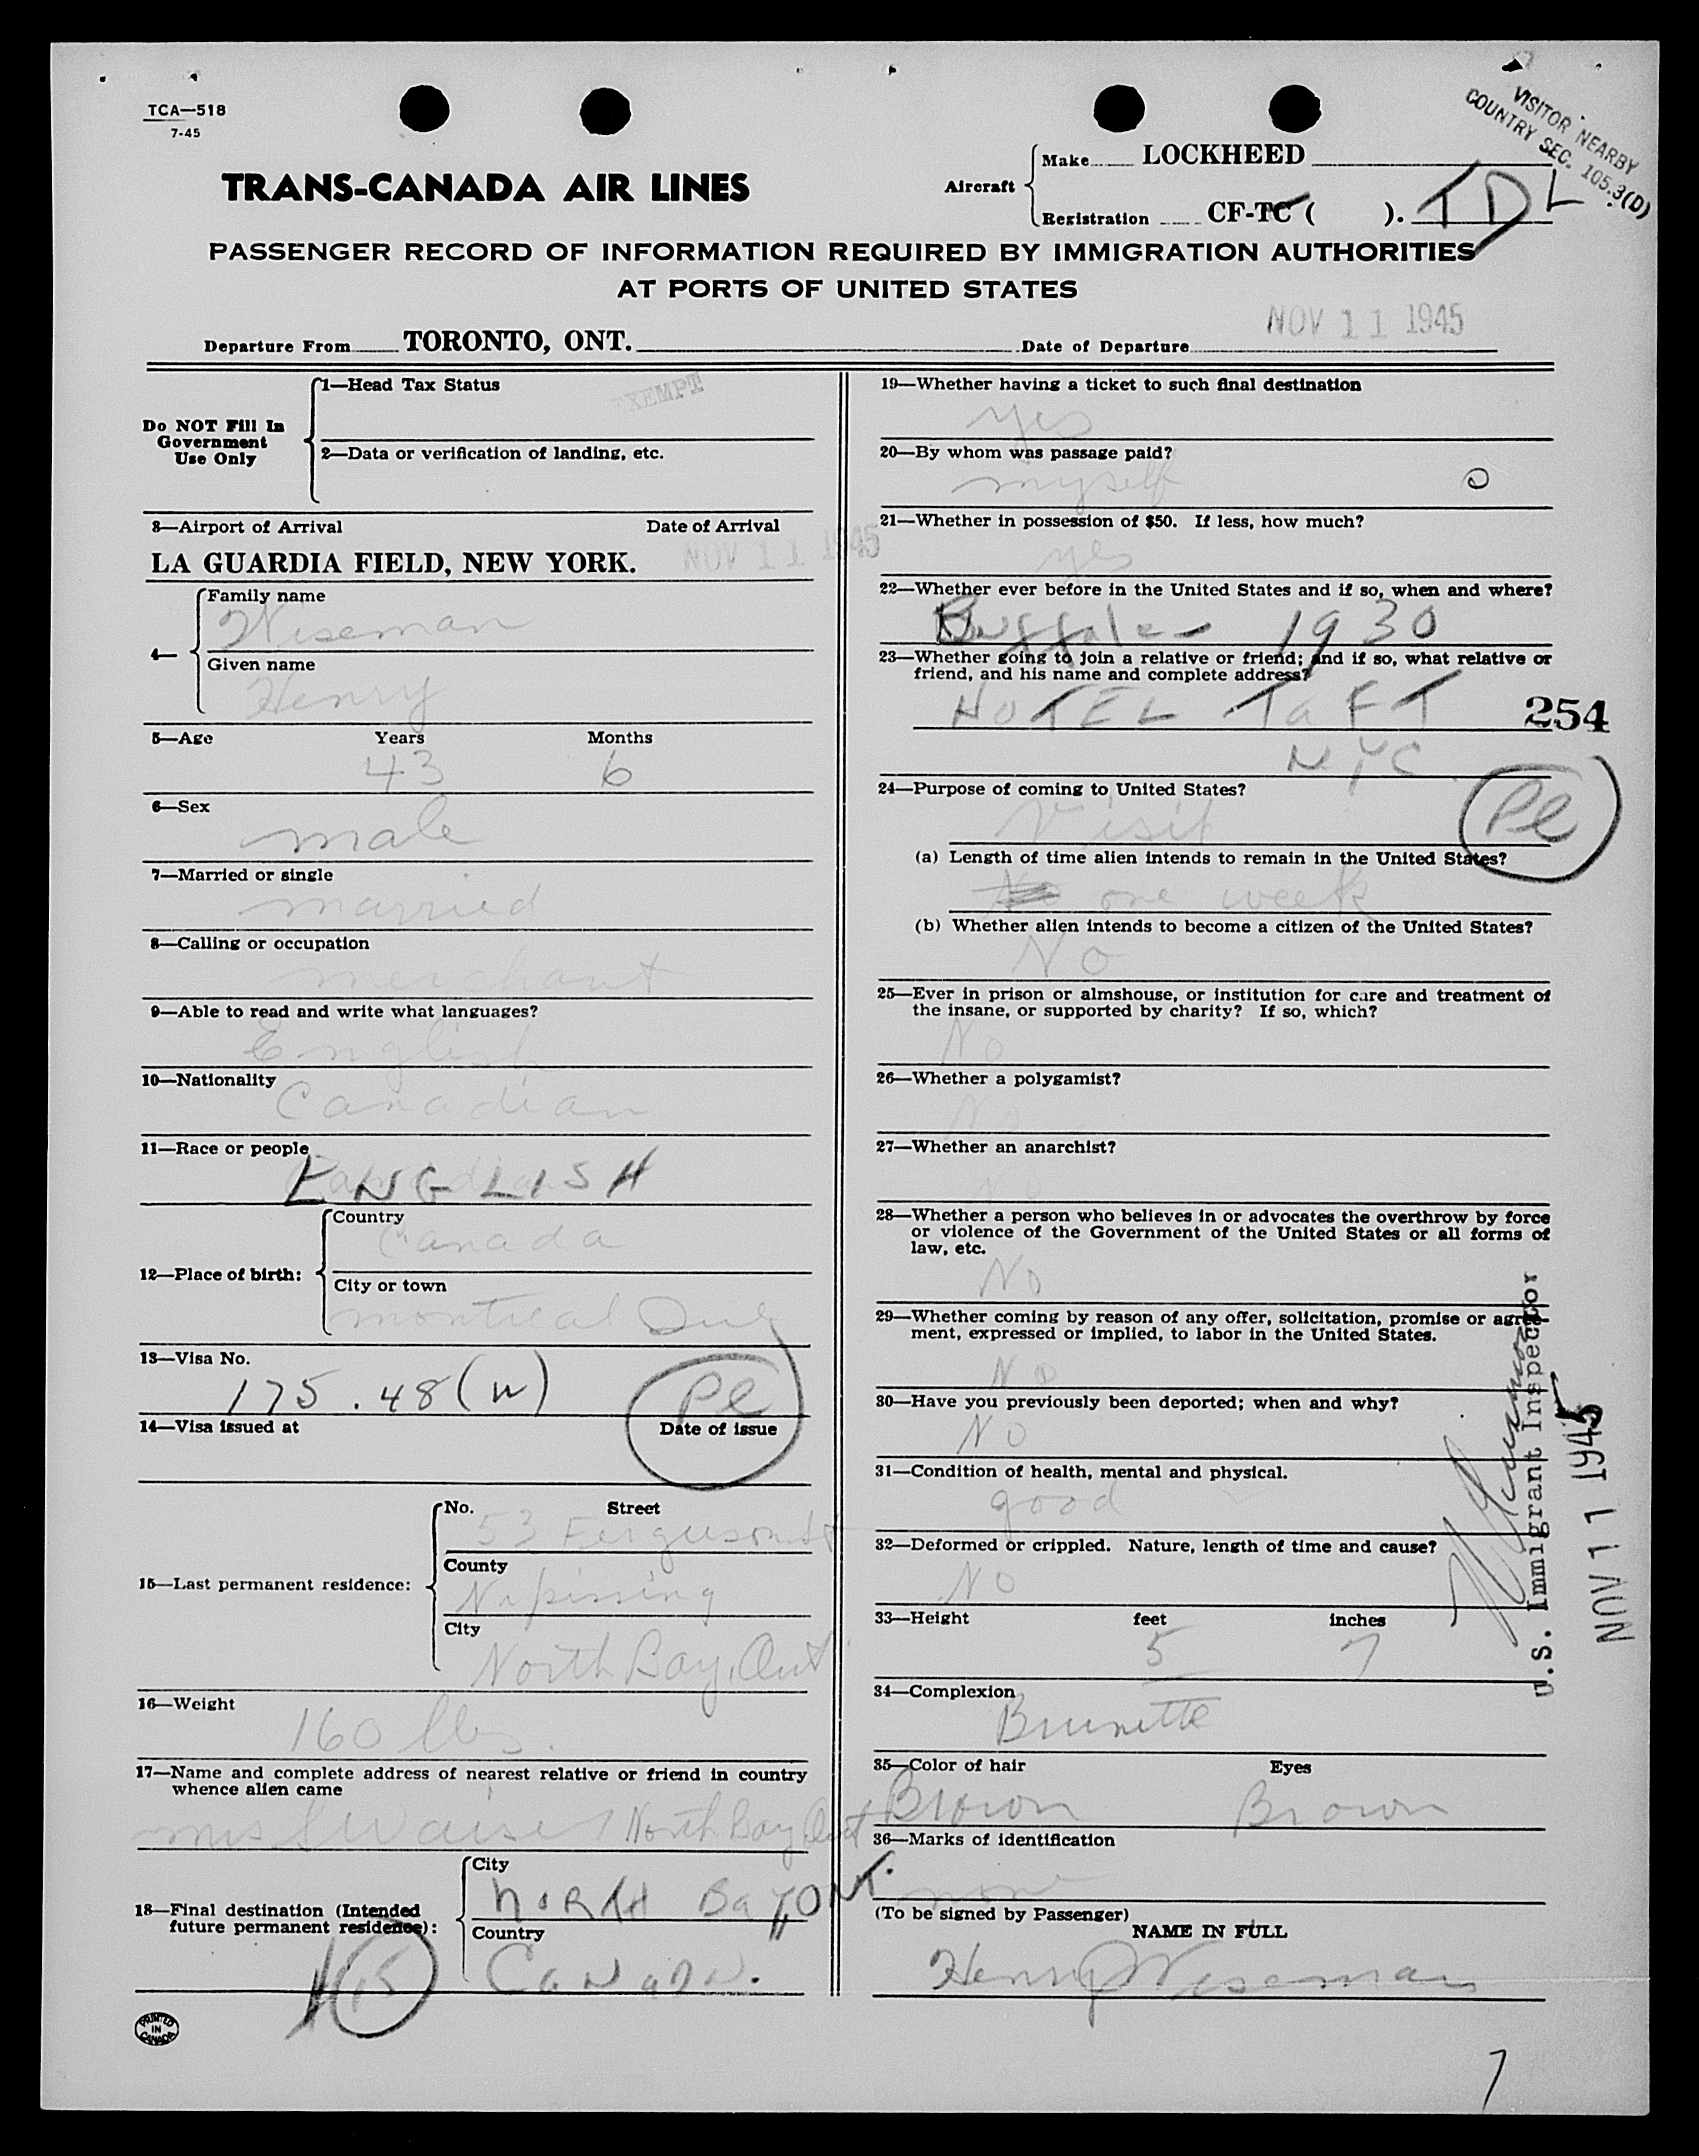 TCA—518
7-45
VISITOR NEARBY
COUNTRY SEC. 105.3(D)
TRANS-CANADA AIR LINES
Aircraft
Make LOCKHEED
Registration CF-TC ( ). TDL
PASSENGER RECORD OF INFORMATION REQUIRED BY IMMIGRATION AUTHORITIES
AT PORTS OF UNITED STATES
Departure From TORONTO, ONT. Date of Departure NOV 11 1945
Do NOT Fill In
Government
Use Only
1—Head Tax Status EXEMPT
2—Data or verification of landing, etc.
3—Airport of Arrival Date of Arrival
LA GUARDIA FIELD, NEW YORK. NOV 11 1945
4—
Family name
Wiseman
Given name
Henry
5—Age Years Months
43 6
6—Sex
male
7—Married or single
married
8—Calling or occupation
merchant
9—Able to read and write what languages?
English
10—Nationality
Canadian
11—Race or people
ENGLISH
12—Place of birth:
Country
Canada
City or town
montreal Que
13—Visa No.
175.48(W)
Pl
14—Visa issued at Date of issue
15—Last permanent residence:
No. Street
53 Ferguson St
County
Nipissing
City
North Bay, Ont
16—Weight
160 lbs.
17—Name and complete address of nearest relative or friend in country
whence alien came
mrs North Bay Ont
18—Final destination (Intended
future permanent residence):
City
NORTH BAY ONT.
Country
CANADA.
PRINTED
IN
CANADA
19—Whether having a ticket to such final destination
yes
20—By whom was passage paid?
myself
21—Whether in possession of $50. If less, how much?
yes
22—Whether ever before in the United States and if so, when and where?
Buffalo - 1930
23—Whether going to join a relative or friend; and if so, what relative or
friend, and his name and complete address?
HOTEL TaFT
254
NYC
24—Purpose of coming to United States?
Visit
Pl
(a) Length of time alien intends to remain in the United States?
one week
(b) Whether alien intends to become a citizen of the United States?
No
25—Ever in prison or almshouse, or institution for care and treatment of
the insane, or supported by charity? If so, which?
No
26—Whether a polygamist?
No
27—Whether an anarchist?
No
28—Whether a person who believes in or advocates the overthrow by force
or violence of the Government of the United States or all forms of
law, etc.
No
29—Whether coming by reason of any offer, solicitation, promise or agree-
ment, expressed or implied, to labor in the United States.
No
30—Have you previously been deported; when and why?
No
31—Condition of health, mental and physical.
good
32—Deformed or crippled. Nature, length of time and cause?
No
33—Height feet inches
5 7
34—Complexion
Brunette
35—Color of hair Eyes
Brown Brown
36—Marks of identification
none
(To be signed by Passenger)
NAME IN FULL
Henry Wiseman
U.S. Immigrant Inspector
NOV 11 1945
7